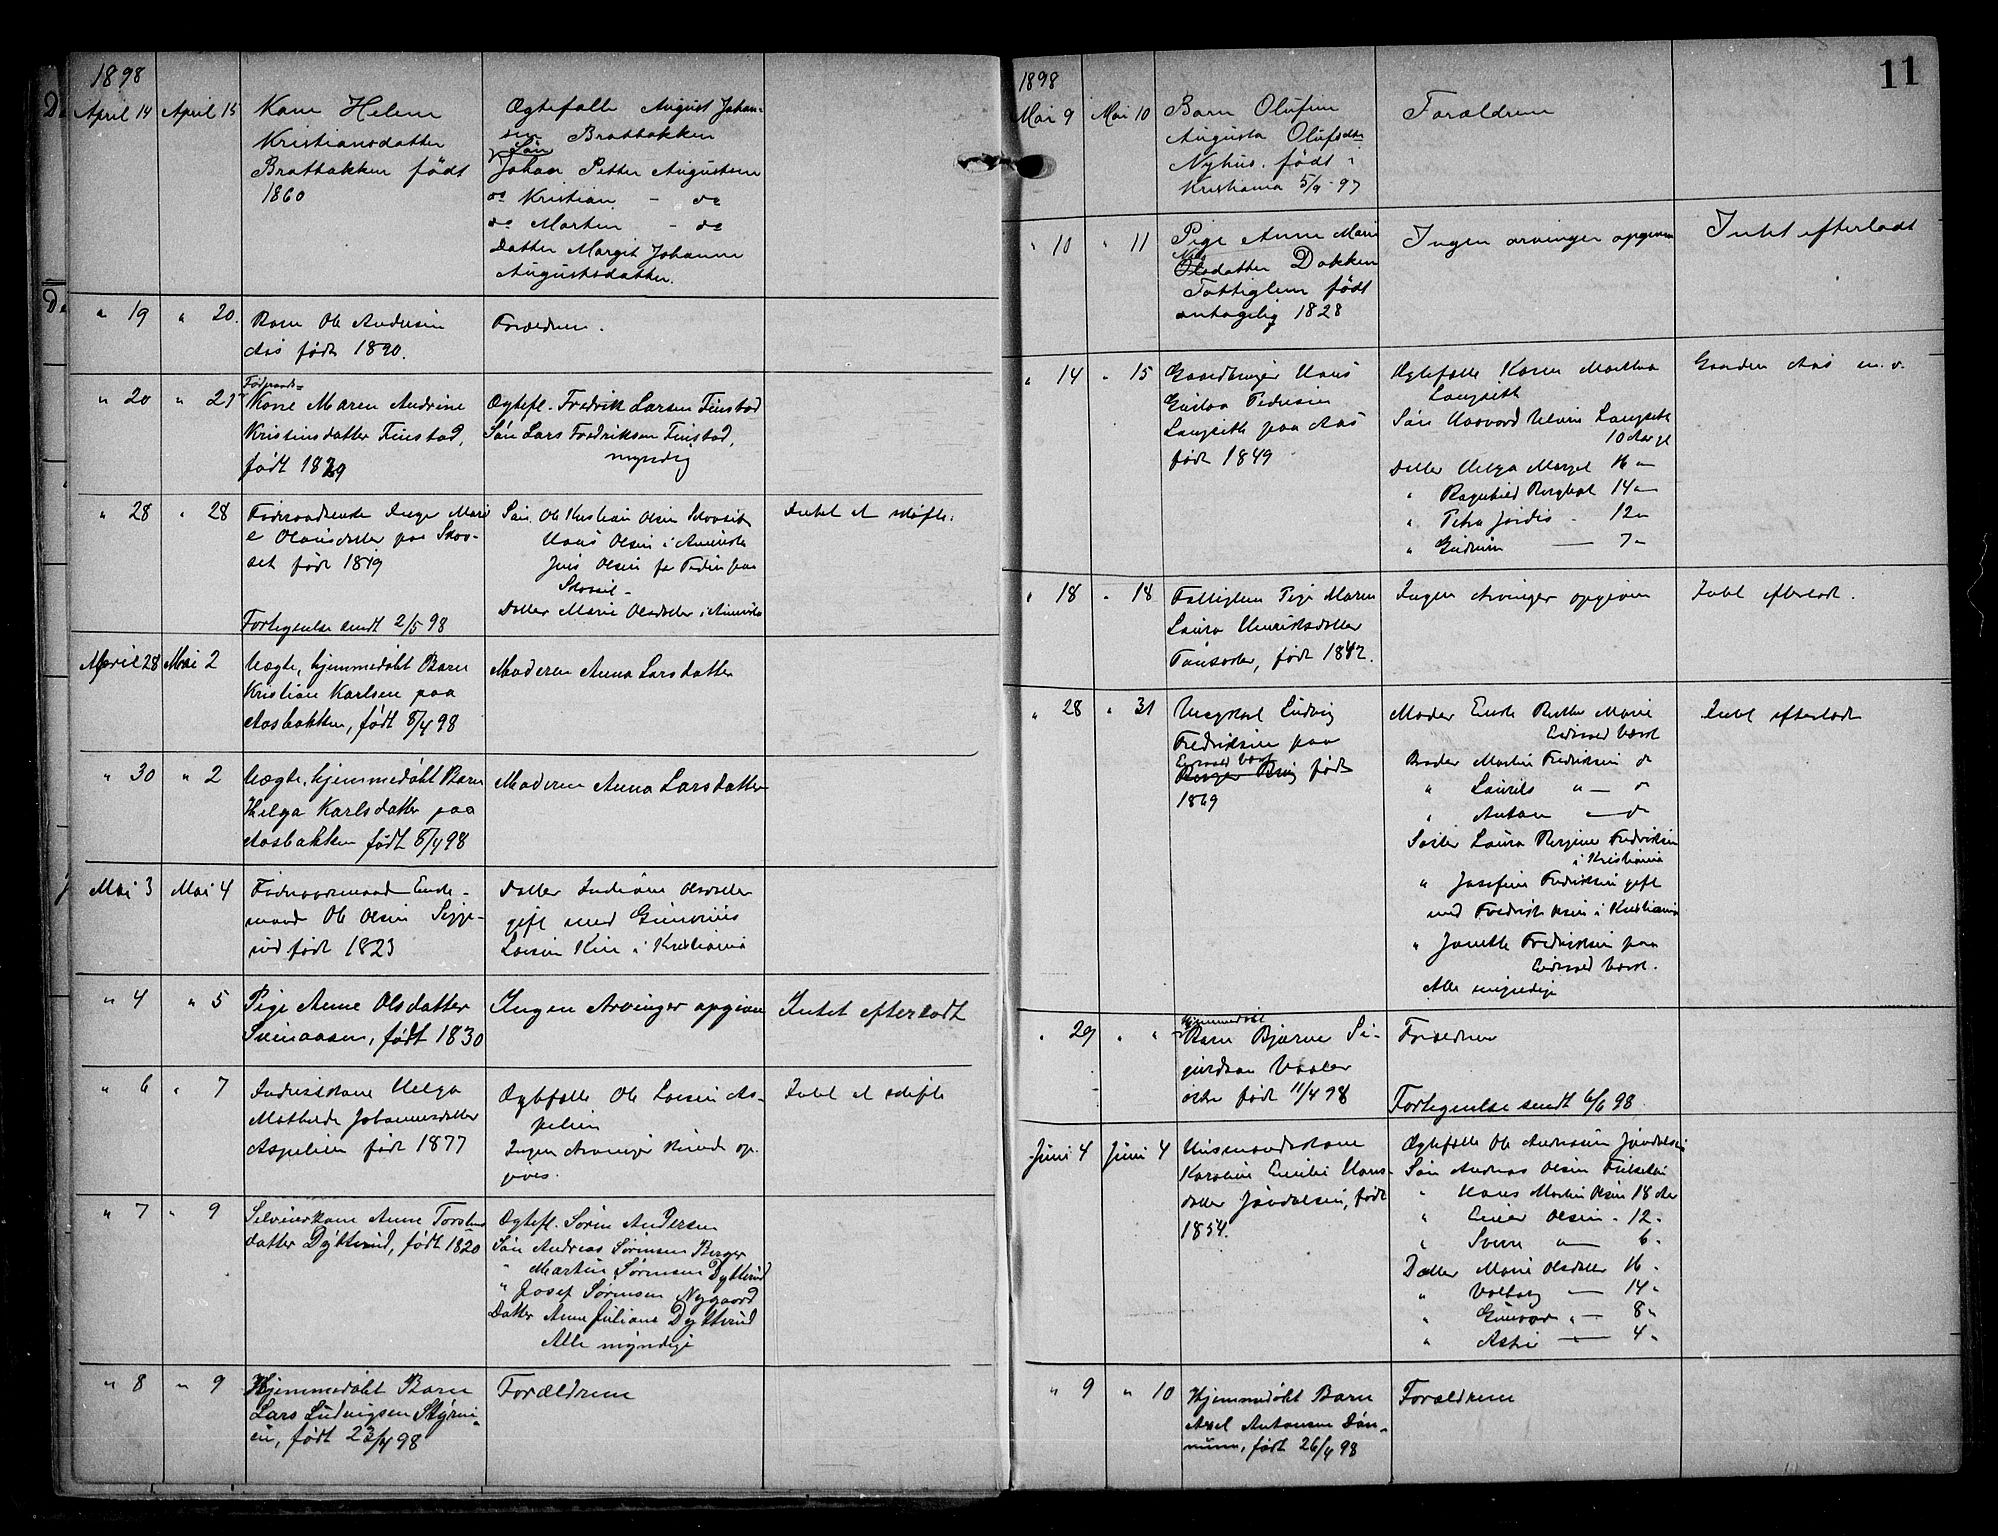 1898
April 14 April 15 Kone Helene
Kristiansdatter
Brattbakken født
1860
Ægtefælle August Johan-
sen Brattbakken
Søn
Johan Petter Augustsen
do Kristian - do
do Morten - do
Datter Margit Johanne
Augustsdatter.
" 19 " 20. Barn Ole Andersen
Aas født 1890.
Forældrene.
" 20 " 21 Føderaads-
Kone Maren Andrine
Kristinsdatter Finstad,
født 1829
Ægtefl. Fredrik Larsen Finstad
Søn Lars Fredriksen Finstad,
myndig
" 28 " 28 Føderaadsenke Inger Mari
e Olausdatter paa Skov-
set født 1819
Fortegnelse sendt 2/5 98
Søn Ole Kristian Olsen
Hans Olsen i Amerika
Jens Olsen
Datter Marie Olsdatter i Amerika
Intet at skifte.
April 28 Mai 2 Uægte, hjemmedøbt Barn
Kristian Karlsen paa
Aasbakken, født 8/4 98
Moderen Anna Larsdatter
" 30 " 2 Uægte, hjemmedøbt Barn
Helga Karlsdatter paa
Aasbakken født 8/4 98
Moderen Anna Larsdatter
Mai 3 Mai 4 Føderaadsmand Enke-
mand Ole Olsen Sigge-
rud født 1823
Datter Indiane Olsdatter
gift med
Larsen i Kristiania
" 4 " 5 Pige Anne Olsdatter
Svenaasen, født 1830
Ingen Arvinger opgiven
Intet efterladt
" 6 " 7 Inderstkone Helga
Mathilde Johannesdatter
Aspelien født 1877
Ægtefælle Ole Larsen As-
pelien
Ingen Arvinger kunde op-
gives.
Intet at skifte
" 7 " 9 Selveierkone Anne Torstens
datter Dyttrud, født 1820
Ægtefl. Søren Andersen
Søn Andreas Sørensen Berger
" Martin Sørensen Dyttrud
" Josef Sørensen Nygaard
Datter Anne Juliane Dyttrud
Alle myndige
" 8 " 9 Hjemmedøbt Barn
Lars Ludvigsen Styrmi-
en, født 23/4 98
Forældrene
11
1898
Mai 9 Mai 10 Barn Olufine
Augusta Olufsdtr
Nyhus. født i
Kristiania 5/9-97
Forældrene
" 10 " 11 Pige Anne Marie
Nils
Olsdatter Dokken
Fattiglem født
antagelig 1828
Ingen arvinger opgiven
Intet efterladt
" 14 " 15 Gaardbruger Hans
Gustav Pedersen
Langseth paa Aas
født 1849
Ægtefælle Karen Martha
Langseth
Søn Haavard Langseth
10 Aar gl
Datter Helga Margot 16 "
" Ragnhild Bergljot 14 "
" Petra Jordis - 12 "
" Gudrun — 7 "
Gaarden Aas m. v.
" 18 " 18 Fattiglem Pige Maren
Laura Henriksdatter
født 1842.
Ingen Arvinger opgiven
Intet efterladt.
" 28 " 31 Ungkarl Ludvig
Fredriksen paa
Eidsvold Værk
født
1869
Moder Enke Marie
Eidsvold Værk
Broder Martin Fredriksen do
" Laurits " — do
" Anton — do
Søster Laura Bergine Fredriksen
i Kristiania
" Josefine Fredriksen gift
med Fredrik Olsen i Kristiania
" Janette Fredriksen paa
Eidsvold Værk.
Alle myndige
Intet efterladt
" 29 " " Hjemmedøbt
Barn Bjarne Si-
gurdsen Vaaler
født 11/4 98
Forældrene
Fortegnelse sendt 6/6 98.
Juni 4 Juni 4 Husmandskone
Karoline Emilie Hans-
datter født
1854.
Ægtefælle Ole Andreasen
Søn Andreas Olsen
" Hans Martin Olsen 18 Aar
" Einar Olsen - 12 "
" Sverre " — 6 "
Datter Marie Olsdatter 16 "
" Valborg — 14 "
" Gunvor " — 8 "
" Astri — 4 "
" 9 " 10 Hjemmedøbt Barn
Axel Antonsen Døn-
num, født 26/4 98
Forældrene